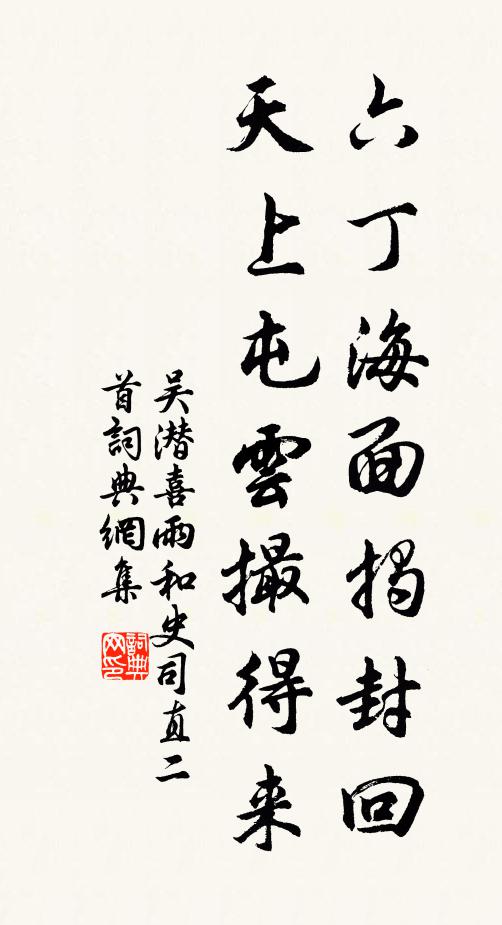 六丁海面揭封回
天上屯雲撮得来
吴潜喜雨和史司直二
首詞典網集
詞典
网印